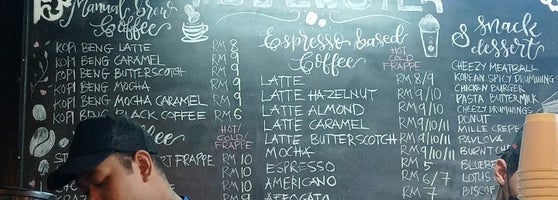 Manual Brew
Coffee
KOPI BENG LATTE RM 8
KOPI BENG CARAMEL RM 9
KOPI BENG BUTTERSCOTCH RM 9
KOPI BENG MOCHA RM 9
KOPI BENG MOCHA CARAMEL RM 9
KOPI BENG BLACK COFFEE RM 6
coffee
HOT/
COLD/
FRAPPE
FRAPPE RM 10
RM 10
RM 10
RM
Espresso based
Coffee
HOT
COLD
FRAPPE
LATTE RM 8/9
LATTE HAZELNUT RM 9/10
LATTE ALMOND RM 9/10
LATTE CARAMEL RM 9/10/11
LATTE BUTTERSCOTCH RM 9/10/11
MOCHA RM 9/10/11
ESPRESSO RM 5
AMERICANO RM 6/7
AFFOGATO RM 7
Snack
dessert
CHEEZY MEATBALL
KOREAN SPICY DRUMMING
CHICKEN BURGER
PASTA BUTTERMILK
CHEEZY DRUMMINGS
DONUT
MILLE CREPE
PAVLOVA
BURNT
BLUEB
LOTUS
BISCOF